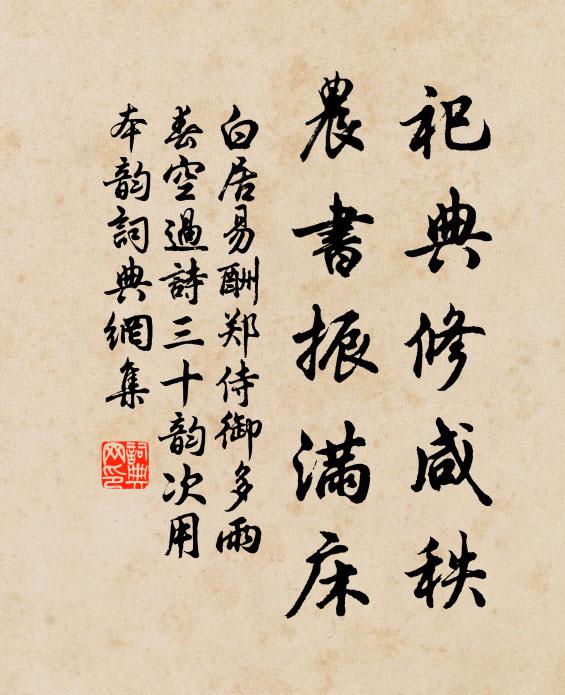 祀典修咸秩
農書振滿床
白居易酬郑侍御多雨
春空過詩三十韵次用
本韵詞典網集
詞典网印